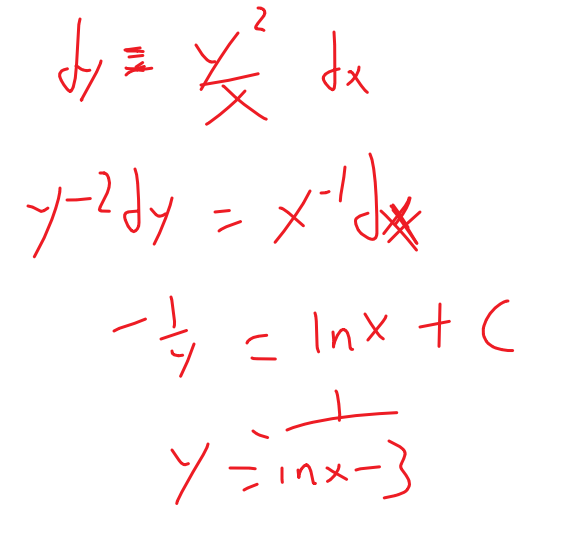 dy = y²/x dx
y⁻²dy = x⁻¹dx
-1/y = lnx + C
y = -1/(lnx-3)